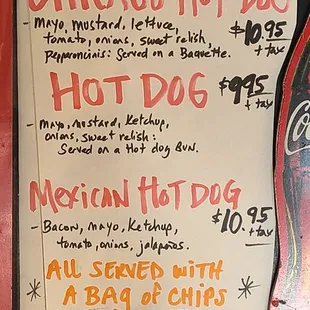 CHICAGO HOT DOG
- Mayo, mustard, lettuce, $10.95
tomato, onions, sweet relish, + tax
Pepperoncinis: Served on a Baquette.
HOT DOG $9.95
+ tax
- Mayo, mustard, Ketchup,
onions, sweet relish:
Served on a Hot dog BUN.
MEXICAN HOT DOG
$10.95
- Bacon, mayo, Ketchup, + tax
tomato, onions, jalapeños.
ALL SERVED WITH
A BAG of CHIPS